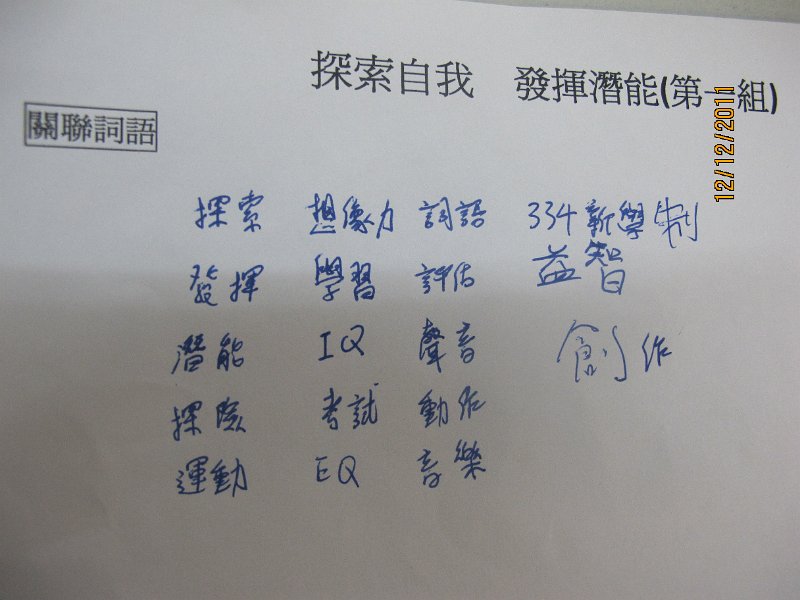 探索自我 發揮潛能(第一組)
關聯詞語
探索 想像力 詞語 334新學制
發揮 學習 評估 益智
潛能 IQ 聲音 創作
探險 考試 動作
運動 EQ 音樂
12/12/2011